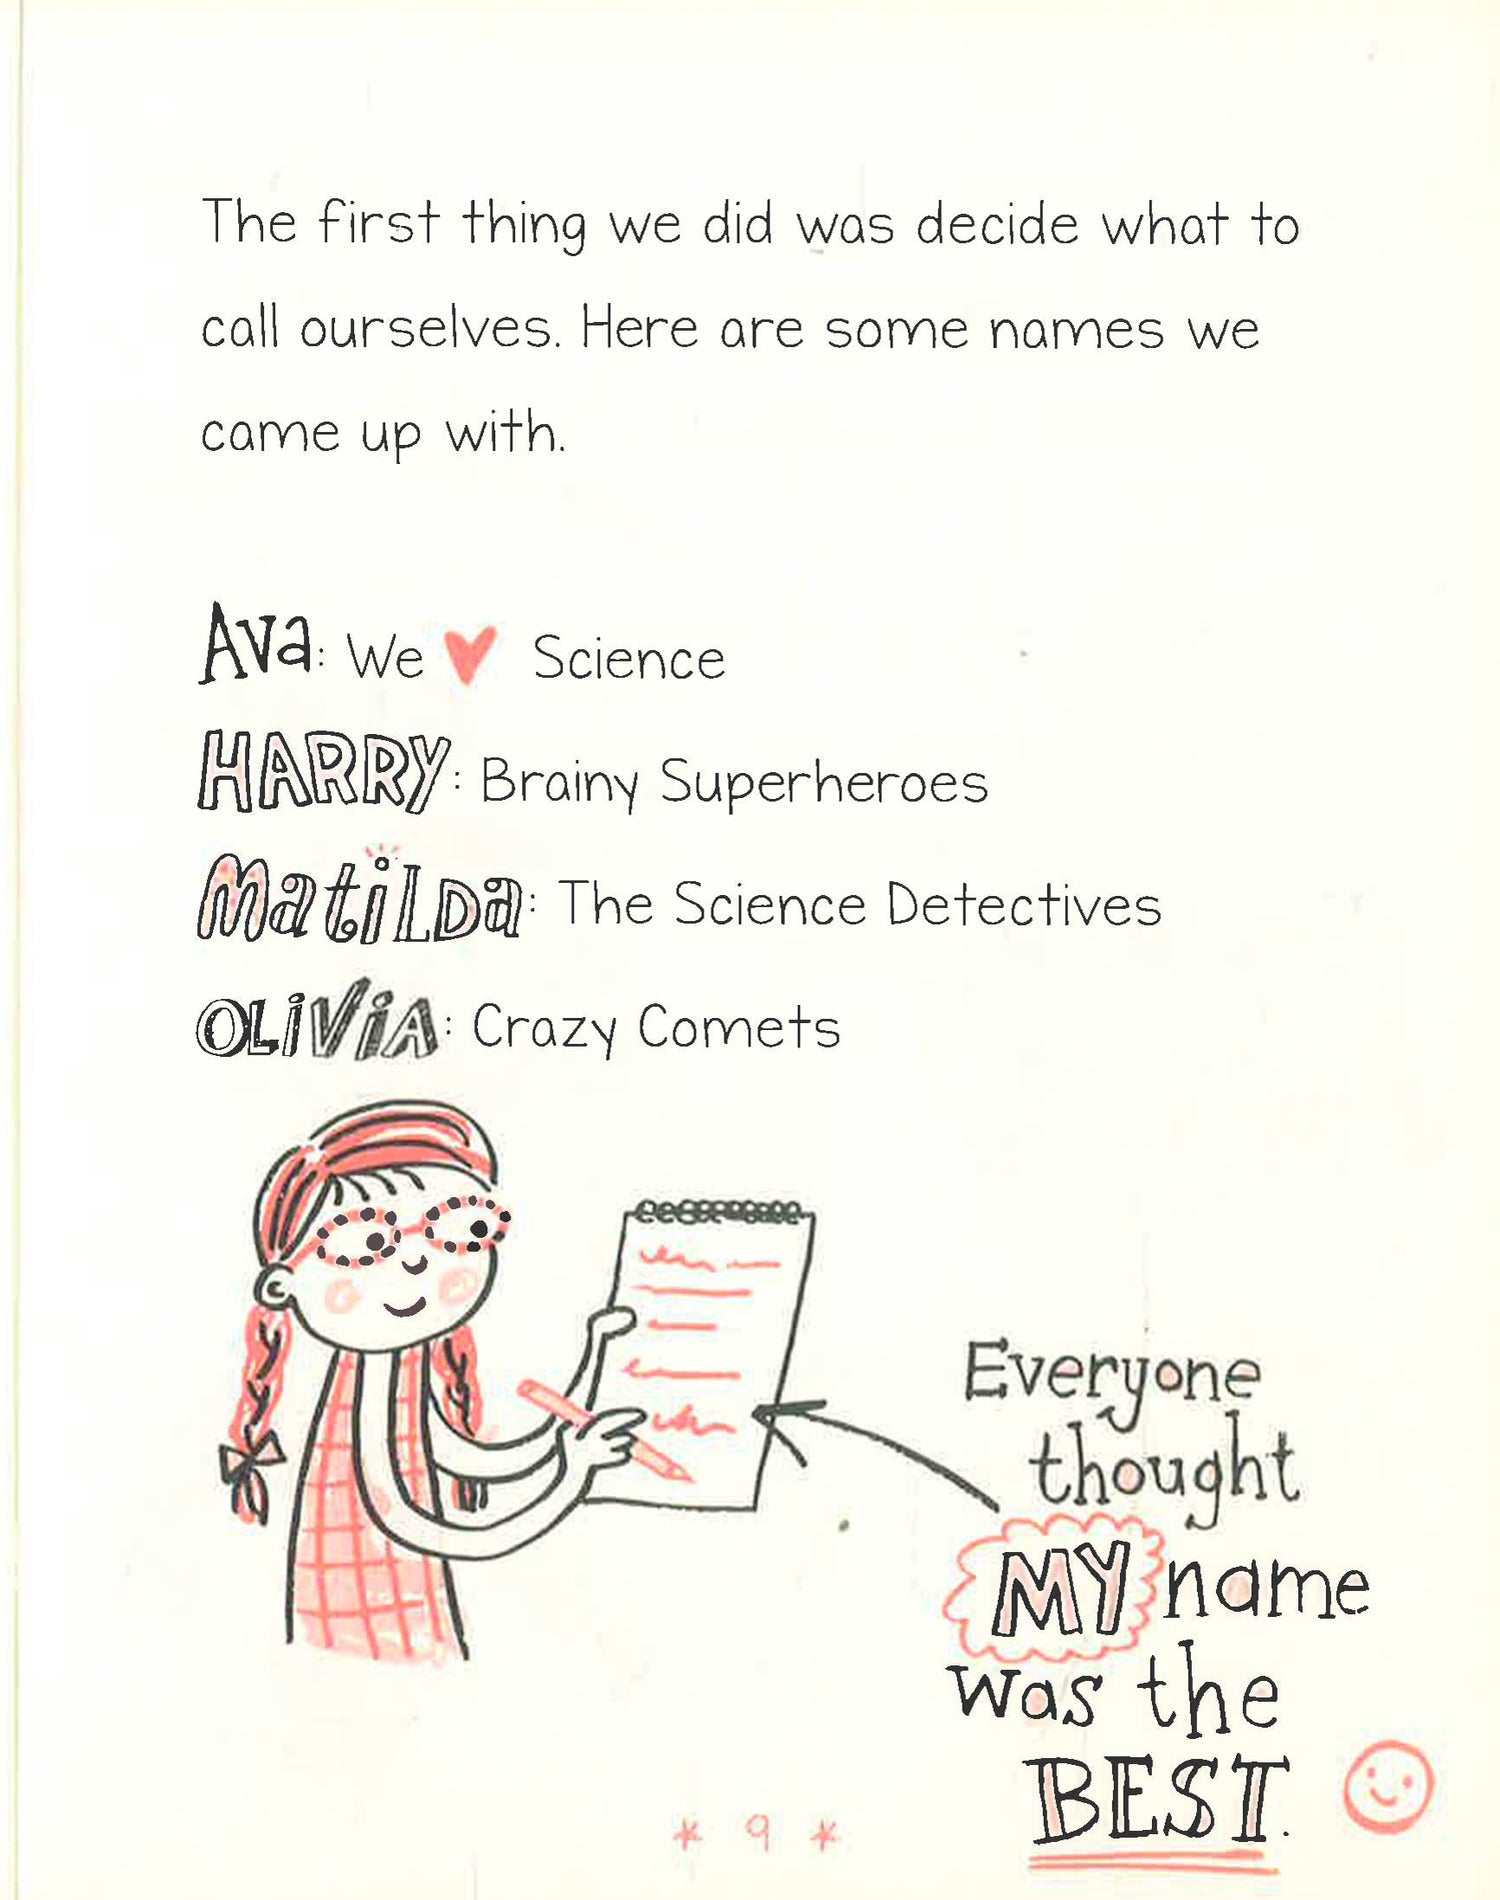 The first thing we did was decide what to
call ourselves. Here are some names we
came up with.
Ava: We ♥ Science
HARRY: Brainy Superheroes
MatiLDa: The Science Detectives
OLiViA: Crazy Comets
Everyone
thought
MY name
was the
BEST.
* 9 *